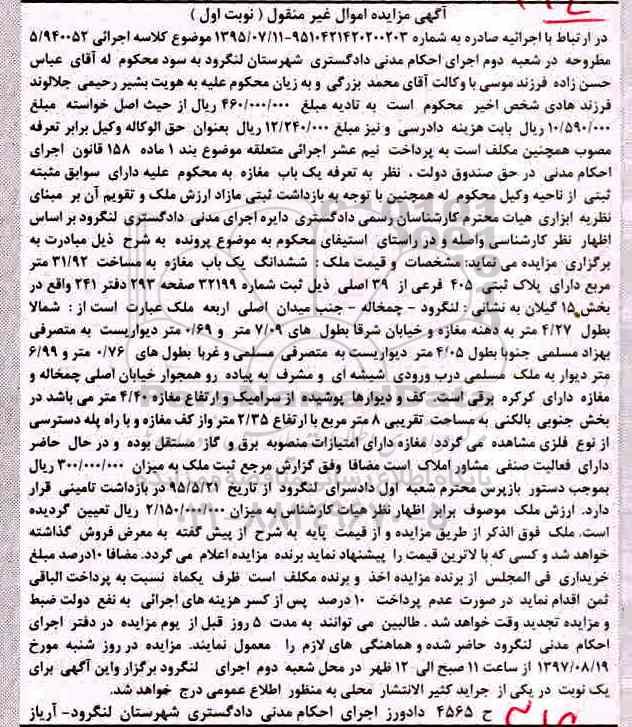 آگهی مزایده اموال غیر منقول ( نوبت اول )
در ارتباط با اجرائیه صادره به شماره ۹۵۱۰۴۲۱۴۲۰۲۰۰۲۰۳-۱۳۹۵/۰۷/۱۱ موضوع کلاسه اجرائی ۵/۹۴۰۰۵۲
مطروحه در شعبه دوم اجرای احکام مدنی دادگستری شهرستان لنگرود به سود محکوم له آقای عباس
حسن زاده فرزند موسی با وکالت آقای محمد بزرگی و به زیان محکوم علیه به هویت بشیر رحیمی جلالوند
فرزند هادی شخص اخیر محکوم است به تادیه مبلغ ۴۶۰/۰۰۰/۰۰۰ ریال از حیث اصل خواسته مبلغ
۱۰/۵۹۰/۰۰۰ ریال بابت هزینه دادرسی و نیز مبلغ ۱۲/۲۴۰/۰۰۰ ریال بعنوان حق الوکاله وکیل برابر تعرفه
مصوب همچنین مکلف است به پرداخت نیم عشر اجرائی متعلقه موضوع بند ۱ ماده ۱۵۸ قانون اجرای
احکام مدنی در حق صندوق دولت . نظر به تعرفه یک باب مغازه به محکوم علیه دارای سوابق مثبته
ثبتی از ناحیه وکیل محکوم له همچنین با توجه به بازداشت ثبتی مازاد ارزش ملک و تقویم آن بر مبنای
نظریه ابرازی هیات محترم کارشناسان رسمی دادگستری دایره اجرای مدنی دادگستری لنگرود بر اساس
اظهار نظر کارشناسی واصله و در راستای استیفای محکوم به موضوع پرونده به شرح ذیل مبادرت به
برگزاری مزایده می نماید: مشخصات و قیمت ملک : ششدانگ یک باب مغازه به مساحت ۳۱/۹۲ متر
مربع دارای پلاک ثبتی ۴۰۵ فرعی از ۳۹ اصلی ذیل ثبت شماره ۳۲۱۹۹ صفحه ۲۹۳ دفتر ۲۴۱ واقع در
بخش ۱۵ گیلان به نشانی : لنگرود - چمخاله - جنب میدان اصلی اربعه ملک عبارت است از : شمالا
بطول ۴/۲۷ متر به دهنه مغازه و خیابان شرقا بطول های ۷/۰۹ متر و ۰/۶۹ متر دیواریست به متصرفی
بهزاد مسلمی جنوبا بطول ۴/۰۵ متر دیواریست به متصرفی مسلمی و غربا بطول های ۰/۷۶ متر و ۶/۹۹
متر دیوار به ملک مسلمی درب ورودی شیشه ای و مشرف به پیاده رو همجوار خیابان اصلی چمخاله و
مغازه دارای کرکره برقی است. کف و دیوارها پوشیده از سرامیک و ارتفاع مغازه ۴/۴۰ متر می باشد در
بخش جنوبی بالکنی به مساحت تقریبی ۸ متر مربع با ارتفاع ۲/۳۵ متر واز کف مغازه و با راه پله دسترسی
از نوع فلزی مشاهده می گردد مغازه دارای امتیازات منصوبه برق و گاز مستقل بوده و در حال حاضر
دارای فعالیت صنفی مشاور املاک است مضافا وفق گزارش مرجع ثبت ملک به میزان ۳۰۰/۰۰۰/۰۰۰ ریال
بموجب دستور بازپرس محترم شعبه اول دادسرای لنگرود از تاریخ ۹۵/۵/۲۱ در بازداشت تامینی قرار
دارد. ارزش ملک موصوف برابر اظهار نظر هیات کارشناس به میزان ۲/۱۵۰/۰۰۰/۰۰۰ ریال تعیین گردیده
است. ملک فوق الذکر از طریق مزایده و از قیمت پایه به شرح از پیش گفته به معرض فروش گذاشته
خواهد شد و کسی که بالاترین قیمت را پیشنهاد نماید برنده مزایده اعلام می گردد. مضافا ۱۰درصد مبلغ
خریداری فی المجلس از برنده مزایده اخذ و برنده مکلف است ظرف یکماه نسبت به پرداخت الباقی
ثمن اقدام نماید در صورت عدم پرداخت ۱۰ درصد پس از کسر هزینه های اجرائی به نفع دولت ضبط
و مزایده تجدید وقت خواهد شد . طالبین می توانند به مدت ۵ روز قبل از یوم مزایده در دفتر اجرای
احکام مدنی لنگرود حاضر شده و هماهنگی های لازم را معمول نمایند. مزایده در روز شنبه مورخ
۱۳۹۷/۰۸/۱۹ از ساعت ۱۱ صبح الی ۱۲ ظهر در محل شعبه دوم اجرای لنگرود برگزار واین آگهی برای
یک نوبت در یکی از جراید کثیر الانتشار محلی به منظور اطلاع عمومی درج خواهد شد.
ح ۴۵۶۵ دادورز اجرای احکام مدنی دادگستری شهرستان لنگرود- آریاز